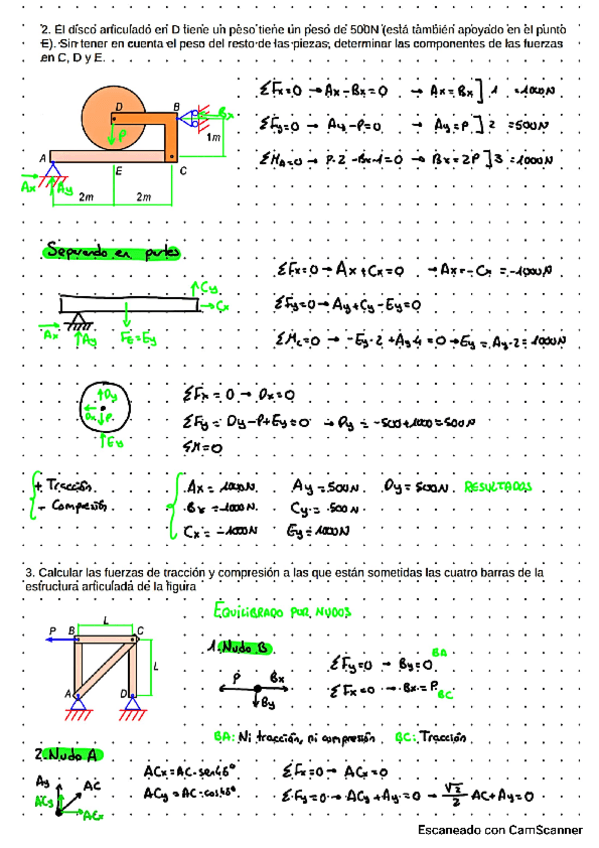 2. El disco articulado en D tiene un peso tiene un peso de 500N (está también apoyado en el punto
E). Sin tener en cuenta el peso del resto de las piezas, determinar las componentes de las fuerzas
en C, D y E.
ΣFx=0 → Ax-Bx=0 → Ax=Bx ] 1 =1000N
ΣFy=0 → Ay-P=0 → Ay=P ] 2 =500N
ΣMA=0 → P·2-Bx·1=0 → Bx=2P ] 3 =1000N
D B Bx
P 1m
A E C
Ax Ay
2m 2m
Separando en partes
ΣFx=0 → Ax+Cx=0 → Ax=-Cx =-1000N
Cy
Cx
ΣFy=0 → Ay+Cy-Ey=0
Ax Ay FE=Ey
ΣMC=0 → -Ey·2+Ay·4=0 → Ey=Ay·2=1000N
Dy
Dx P
Ey
ΣFx=0 → Dx=0
ΣFy= Dy-P+Ey=0 → Dy=-500+1000=500N
ΣM=0
+ Tracción
- Compresión
Ax=1000N Ay=500N Dy=500N RESULTADOS
Bx=1000N Cy=500N
Cx=-1000N Ey=1000N
3. Calcular las fuerzas de tracción y compresión a las que están sometidas las cuatro barras de la
estructura articulada de la figura
EQUILIBRADO POR NUDOS
L
P B C
L
A D
1. Nudo B
P Bx
By
ΣFy=0 → By=0 BA
ΣFx=0 → Bx=P BC
BA: Ni tracción, ni compresión BC: Tracción
2. Nudo A
Ay AC
ACy
ACx
ACx=AC·sen45°
ACy=AC·cos45°
ΣFx=0 → ACx=0
ΣFy=0 → ACy+Ay=0 → √2/2 AC+Ay=0
Escaneado con CamScanner